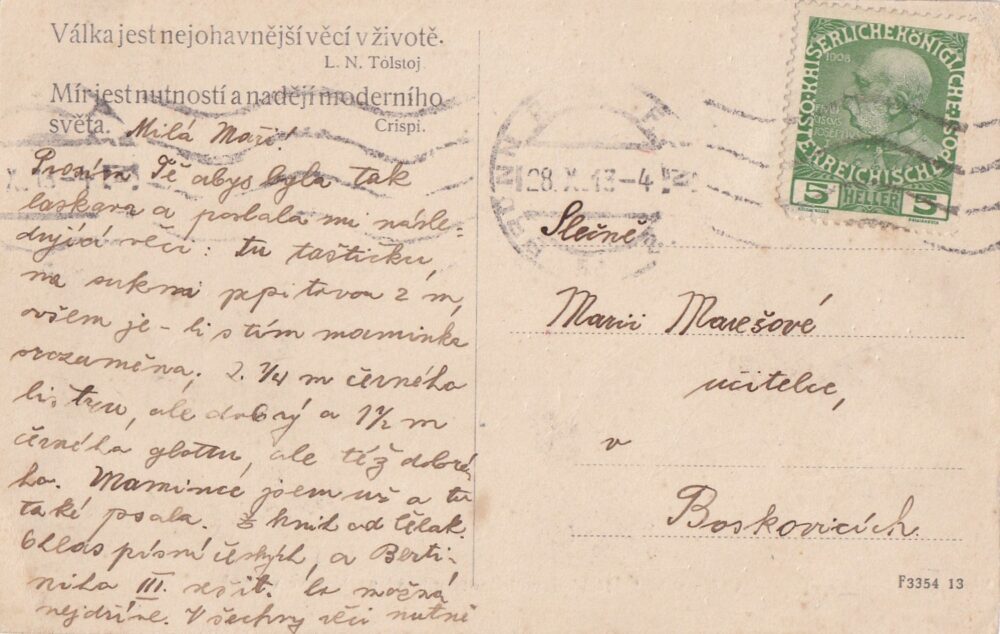 Válka jest nejohavnější věcí v životě.
L. N. Tolstoj
Mír jest nutností a nadějí moderního
světa.
Crispi.
Milá Maři!
Prosím Tě abys byla tak
laskava a poslala mi násle-
dující věci: tu taštičku,
na sukni pepitovou 2 m,
ovšem je-li s tím maminka
srozuměna. 2 1/4 m černého
listru, ale dobrý a 1 1/2 m
černého glottu, ale též dobré
ho. Mamince jsem už a tu
také psala. Z knih od Čelak.
Ohlas písní českých, a Berti-
niho III. sešit. co možná
nejdříve. Všechny věci nutně
BRÜNN
28. X. 13-4
X. 13-4
KAISERLICHE KÖNIGLICHE
ÖSTERREICHISCHE POST
1908
5 HELLER 5
Slečně
Marii Marešové
učitelce,
v
Boskovicích.
F3354 13